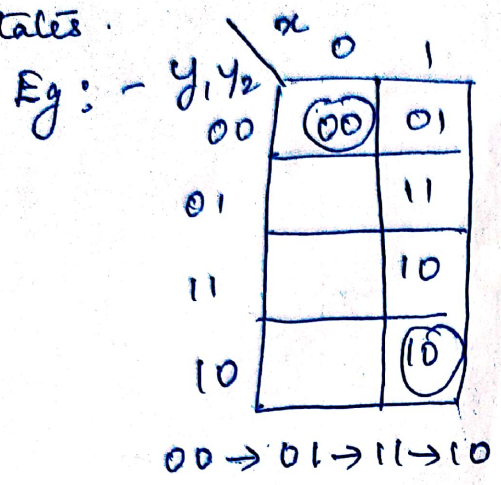 tates.
Eg : - y₁y₂ x 0 1
00 00 01
01 11
11 10
10 10
00 → 01 → 11 → 10